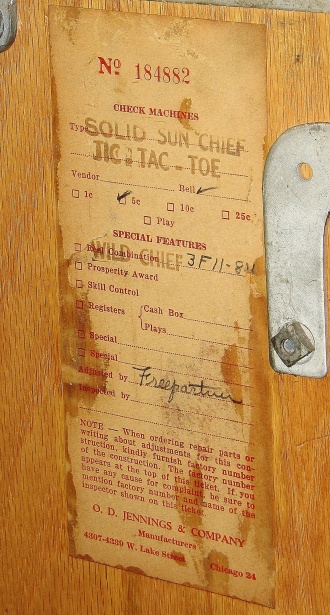 Nº 184882
CHECK MACHINES
Type SOLID SUN CHIEF
TIC-TAC-TOE
Vendor Bell ✓
1c ✓ 5c 10c 25c
Play
SPECIAL FEATURES
Reel Combination WILD CHIEF 3F11-84
Prosperity Award
Skill Control
Registers { Cash Box
Plays
Special
Special
Adjusted by
Inspected by
NOTE — When ordering repair parts or
writing about adjustments for this con-
struction, kindly furnish factory number
of the construction. The factory number
appears at the top of this ticket. If you
have any cause for complaint, be sure to
mention factory number and name of the
inspector shown on this ticket.
O. D. JENNINGS & COMPANY
Manufacturers
4307-4339 W. Lake Street Chicago 24